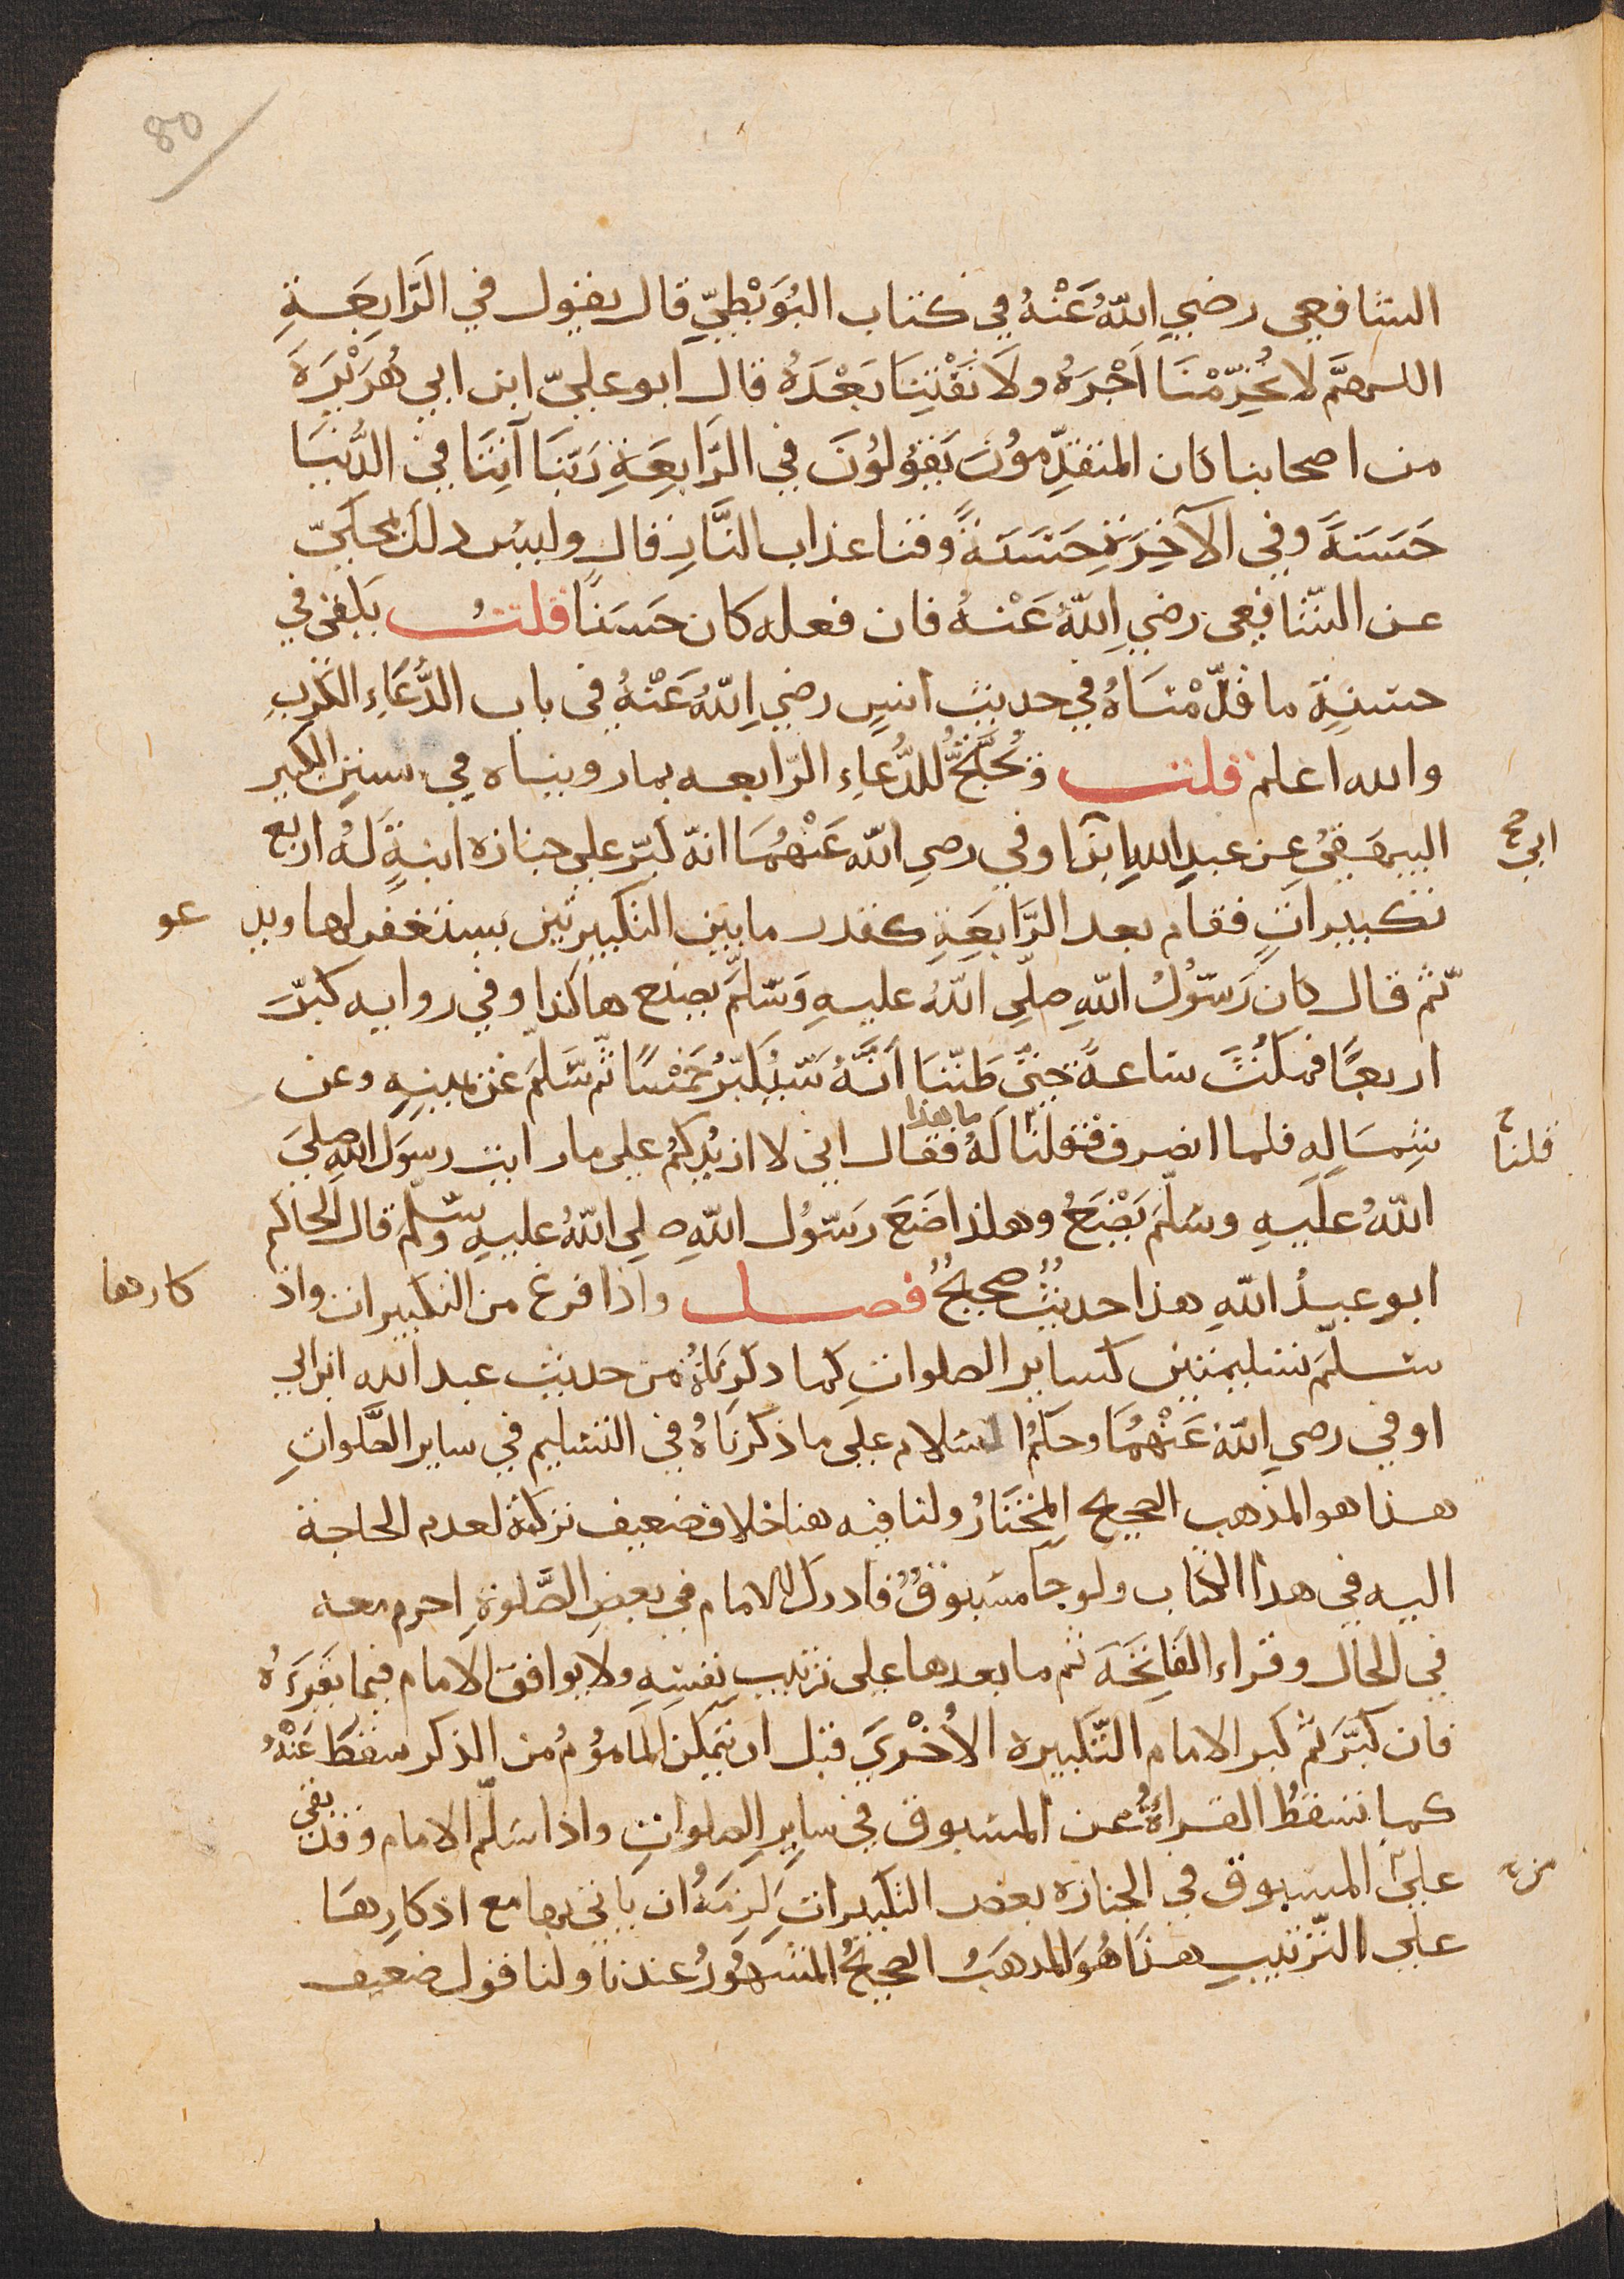 80
الشافعي رضي اللهُ عَنْهُ في كتاب البُوَيْطيّ قال يقول في الرَّابِعَةِ
اللهمَّ لا تَحْرِمْنَا اَجْرَهُ ولَا تَفْتِنَّا بَعْدَهُ قال ابو عليّ ابن ابي هُرَيْرَةَ
من اصحابنا كان المتقدِّمُونَ يَقُولُونَ في الرَّابِعَةِ رَبَّنَا آتِنَا في الدُّنْيَا
حَسَنَةً وفي الآخِرَةِ حَسَنَةً وقنا عذاب النَّارِ قال وليس ذلك بمحكيّ
عن الشّافعي رضي اللهُ عَنْهُ فان فعله كان حَسَنًا قلتُ يكفي في
حسنِهِ ما قدّمْنَاهُ في حديث انسٍ رضي اللهُ عَنْهُ في باب الدُّعَاءِ الكَرْبِ
والله اعلم قلت وَيُحْتَجُّ للدُّعاءِ الرّابعه بما رويناه في سنن الكبير
البيهَقيُ عن عبدِ اللهِ ابنَ اوفي رضي الله عَنْهُمَا انّه كبّر علي جنازة ابنةٍ لَهُ اربع
ابي صح
تكبيراتٍ فقام بعد الرَّابِعَةِ كقدر ما بين التكبيرتين يستغفر لها ويد
عو
ثمّ قال كان رَسُولُ اللهِ صلّي اللهُ عليهِ وَسَلَّمَ يصنع هاكذا وفي روايه كبّرَ
اربعًا فمكثَ ساعةً حتّي ظَنَنَّا اَنَّهُ سَيُكَبِّرُ خَمْسًا ثمّ سَلَّمَ عَنْ يمينِهِ وعن
شِمَالِهِ فلما انصرف فقلنا لَهُ ما هذا فقال اني لا ازيدُكُم علي ما رايت رسولَ اللهِ صلّيَ
قلنا
اللهُ عَلَيهِ وسَلَّمَ يَصْنَعُ وهاكذا صَنَعَ رَسُولُ اللهِ صلي اللهُ عليهِ وسَلَّمَ قال الحاكم
ابو عبدُ اللهِ هذا حديثٌ صحيحٌ فصل واذا فرغ من التكبيرات واذ
كارها
سَلَّمَ تسليمتين كسايرِ الصلواتِ كما ذكرنَاهُ من حديث عبد الله ابن ابي
اوفي رضي اللهُ عَنْهُمَا وحكمُ السلام علي ما ذكرنَاهُ في التسليم في ساير الصَّلواتِ
هذا هو المذهب الصحيح المختَارُ ولنا فيه هنا خلاف ضعيف تركتهُ لعدم الحاجة
اليه في هذا الكتاب ولو جا مسبوقٌ فادرك الامام في بعضِ الصَّلوةِ احرم معه
في الحال وقراء الفَاتِحَةَ ثم ما بعدها علي ترتيب نفسِهِ ولا يوافق الامام فيما يقرَءُهُ
فان كبَّرَ ثم كبر الامام التّكبيره الاُخْرَيَ قبل ان يتمكن الماموُمُ من الذكر سقطَ عَنْهُ
كما تسقطُ القراةُ عن المسبوق في سايرِ الصلواتِ واذا سلّم الامام وقد بقي
عليَ المسبوق في الجنازه بعض التكبيراتِ لَزِمَهُ ان ياتي بها مع اذكارِهَا
علي التّرتيبِ هذَا هُوَ المذهبُ الصحيحُ المشهورُ عندنا ولنا قول ضعيف